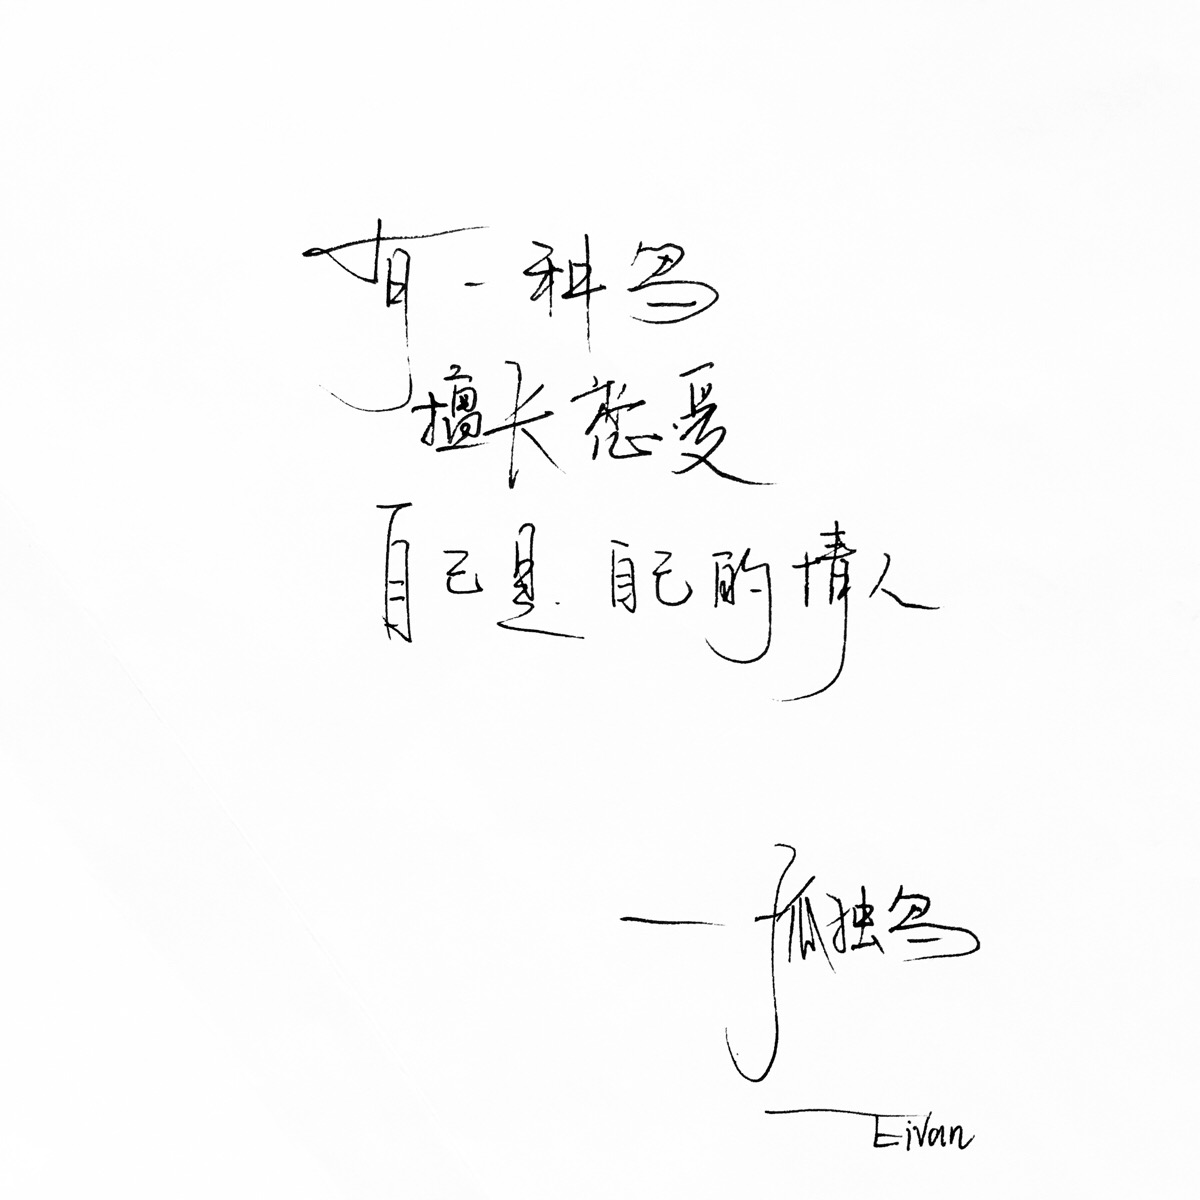 有一种鸟
擅长恋爱
自己是自己的情人
—孤独鸟
Eivan